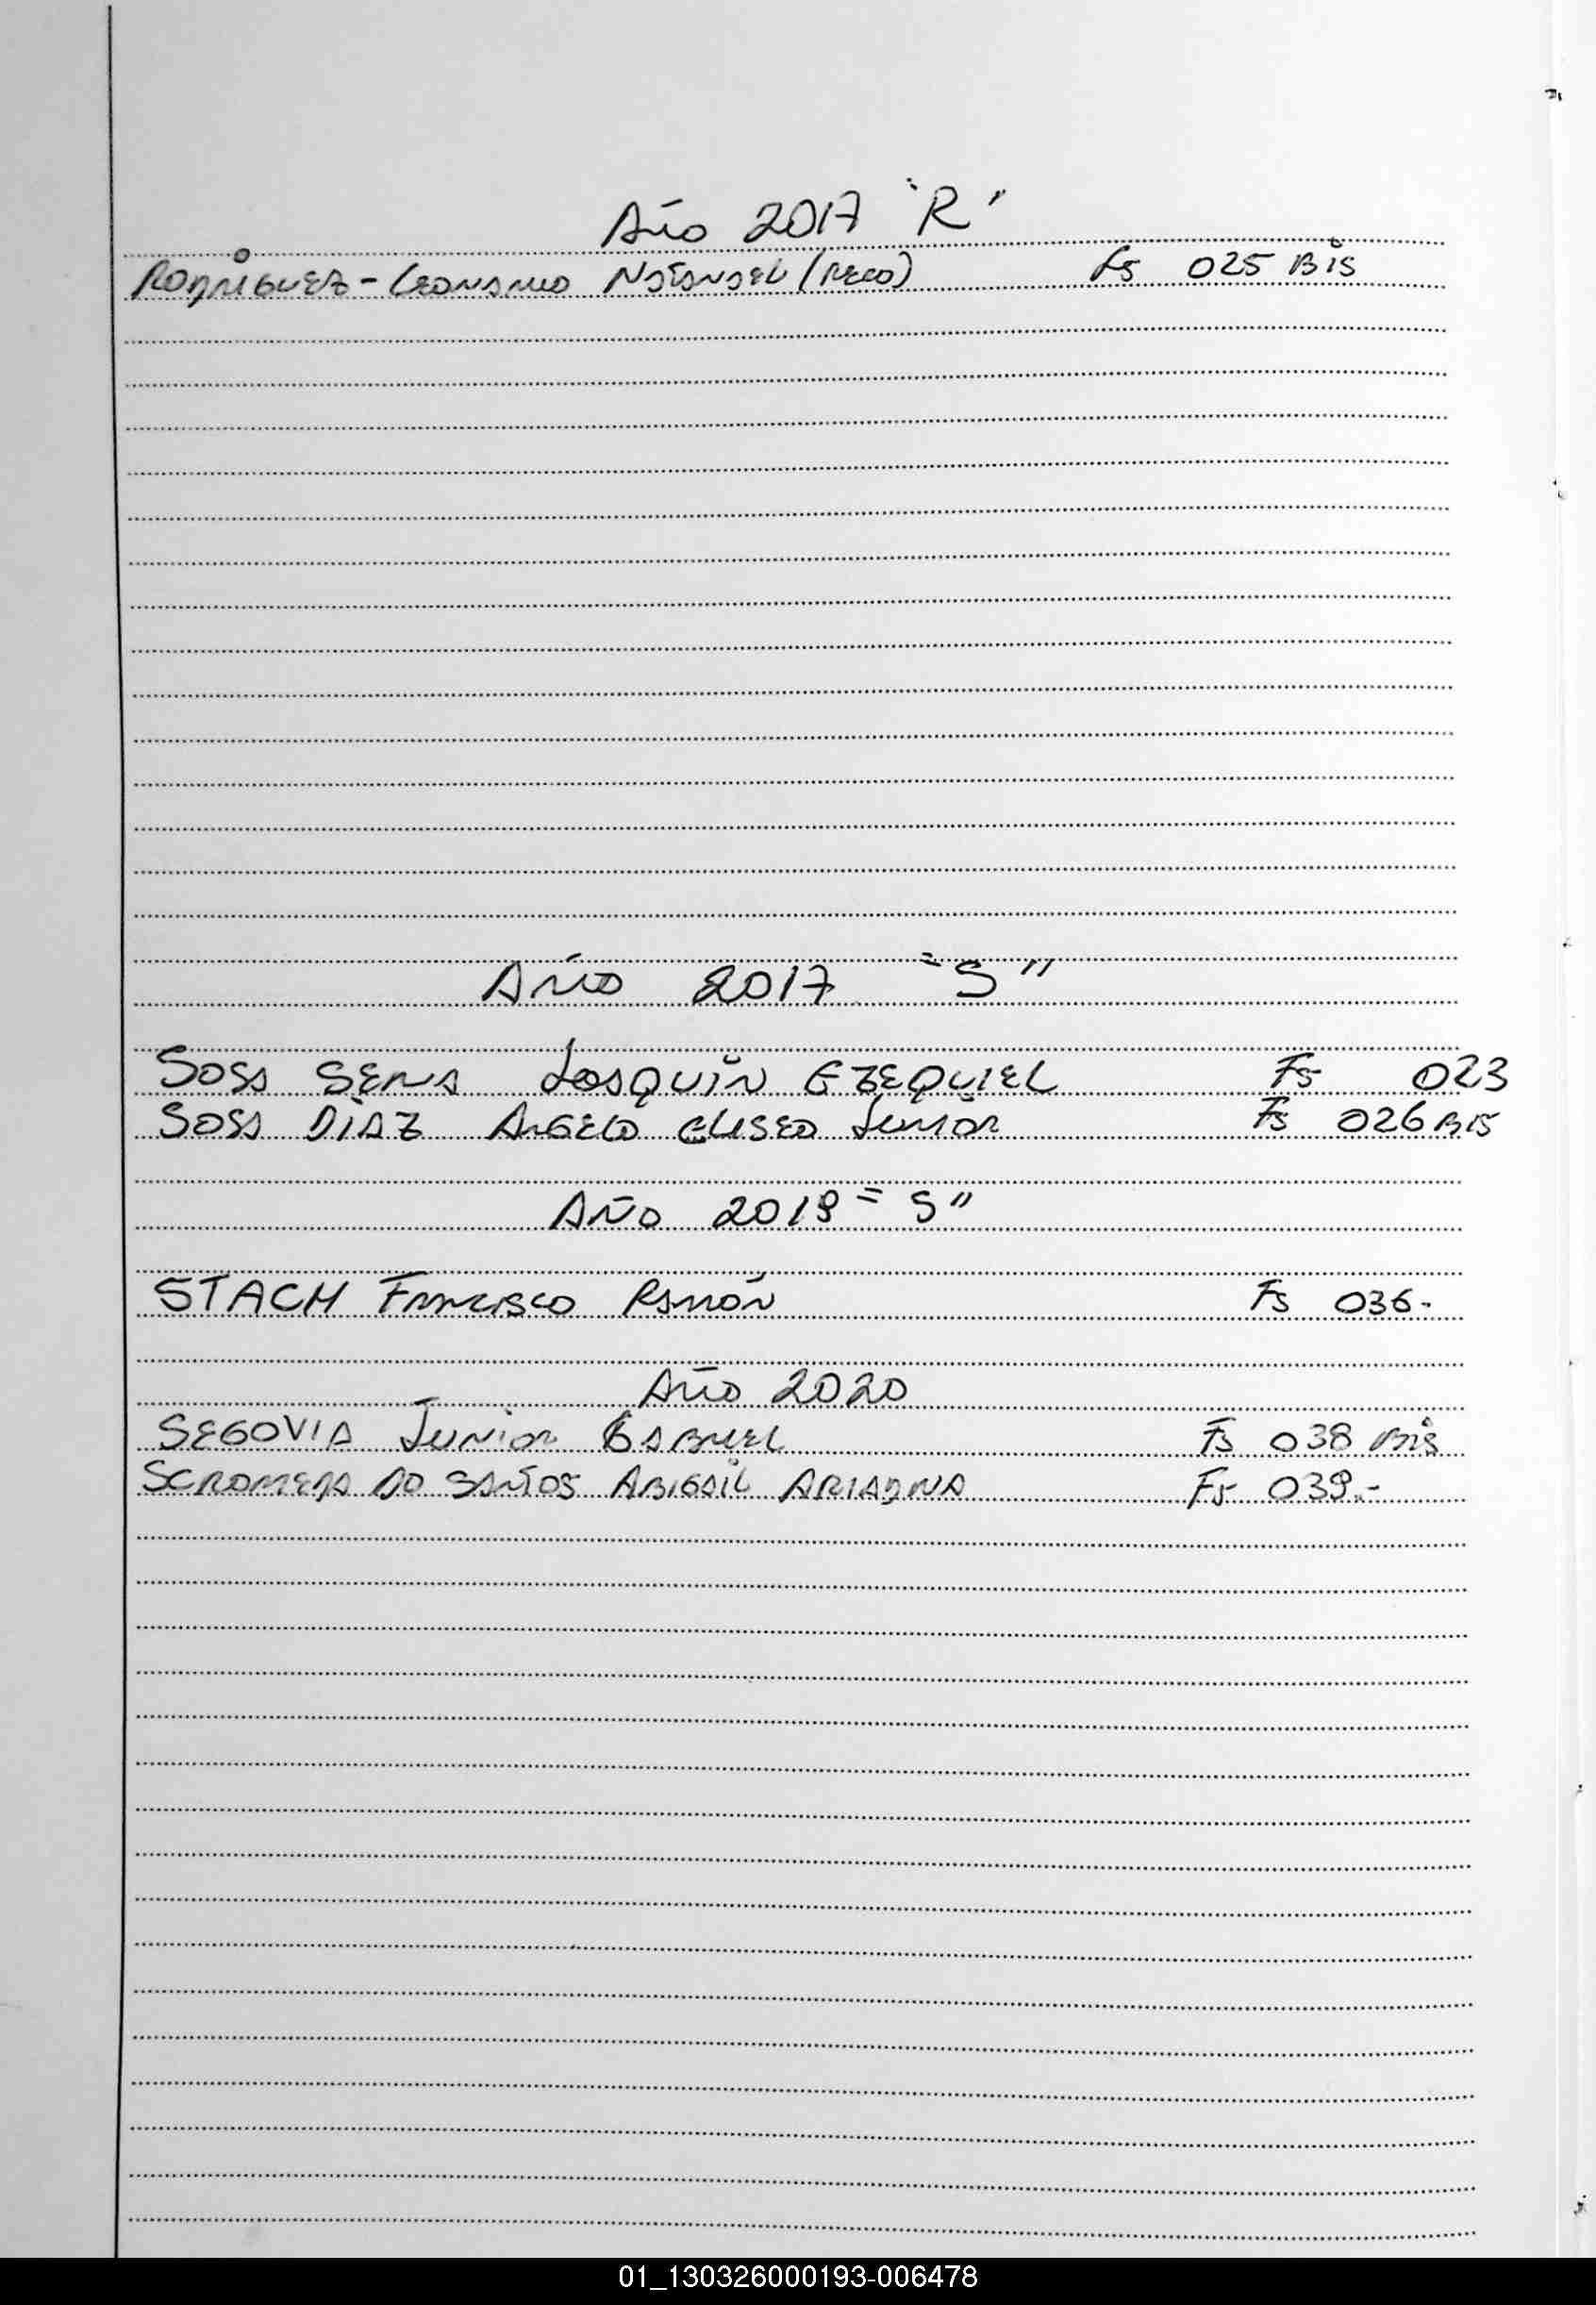 Año 2017 "R"
RODRIGUEZ - LEONARDO NATANAEL (RECO) Fs 025 Bis
Año 2017 "S"
SOSA SENA JOAQUIN EZEQUIEL Fs 023
SOSA DIAZ ANGELO ELISEO JUNIOR Fs 026 Bis
AÑO 2019 "S"
STACH FRANCISCO RAMÓN Fs 036.-
Año 2020
SEGOVIA JUNIOR GABRIEL Fs 038 Bis
SCROMEDA DO SANTOS ABIGAIL ARIADNA Fs 039.-
01_130326000193-006478